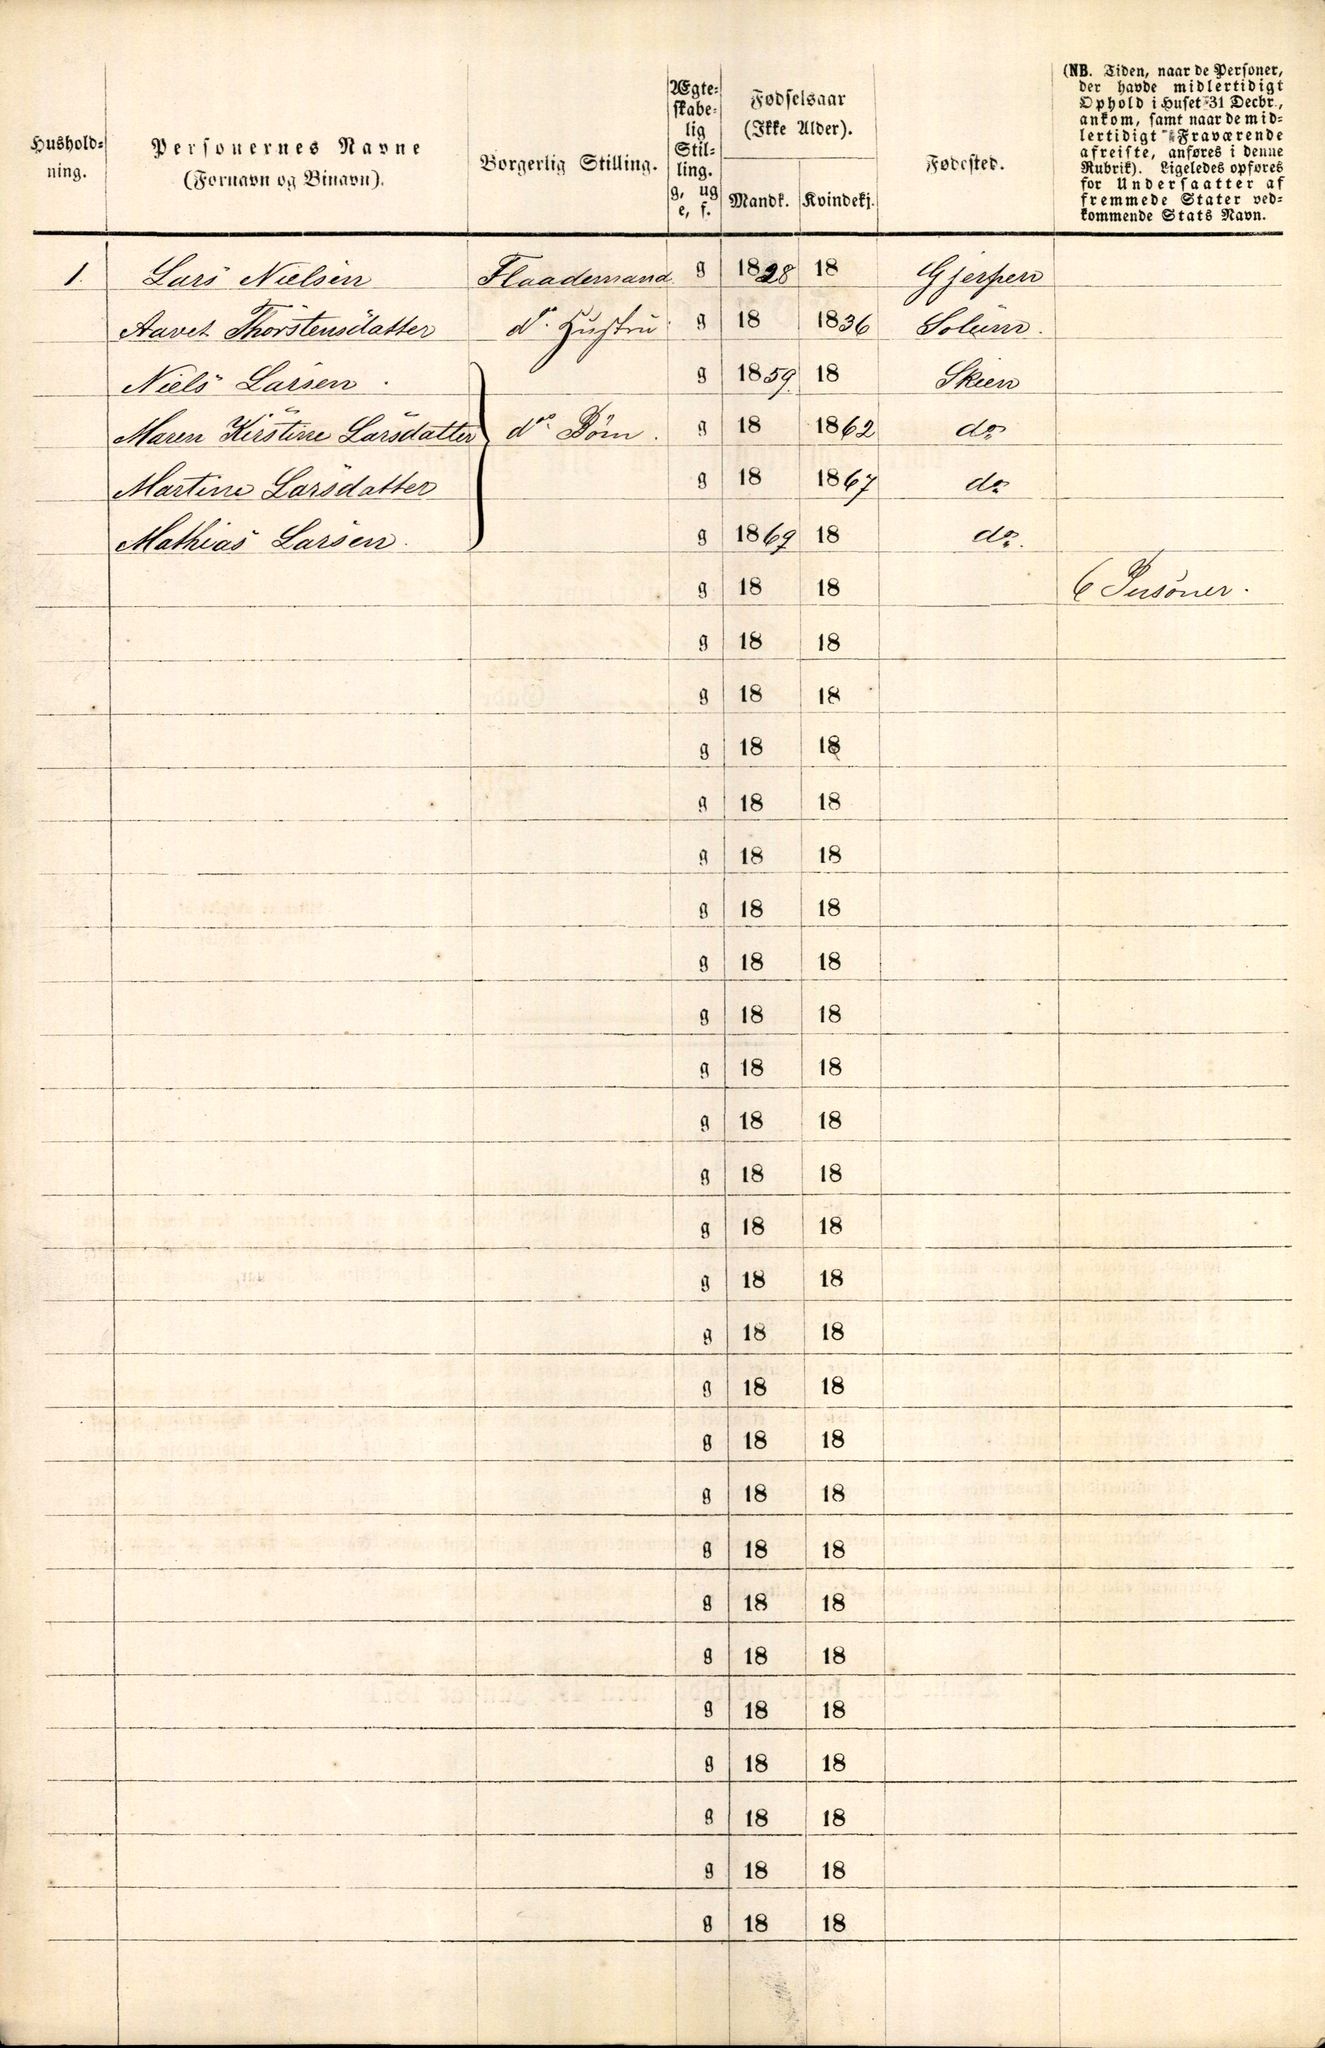 Hushold-
ning.
Personernes Navne
(Fornavn og Binavn).
Borgerlig Stilling.
Ægte-
skabe-
lig
Stil-
ling.
g, ug
e, f.
Fødselsaar
(Ikke Alder).
Mandk. Kvindekj.
Fødested.
(NB. Tiden, naar de Personer,
der havde midlertidigt
Ophold i Huset 31 Decbr.,
ankom, samt naar de mid-
lertidigt Fraværende
afreiste, anføres i denne
Rubrik). Ligeledes opføres
for Undersaatter af
fremmede Stater ved-
kommende Stats Navn.
1. Lars Nielsen Flaademand g 1828 18 Gjerpen
Aavet Thorstensdatter do. Hustru g 18 1836 Solum.
Niels Larsen. g 1859. 18 Skien
Maren Kirstine Larsdatter do. Børn. g 18 1862 do.
Martine Larsdatter g 18 1867 do.
Mathias Larsen. g 1869 18 do.
g 18 18 6 Personer.
g 18 18
g 18 18
g 18 18
g 18 18
g 18 18
g 18 18
g 18 18
g 18 18
g 18 18
g 18 18
g 18 18
g 18 18
g 18 18
g 18 18
g 18 18
g 18 18
g 18 18
g 18 18
g 18 18
g 18 18
g 18 18
g 18 18
g 18 18
g 18 18
g 18 18